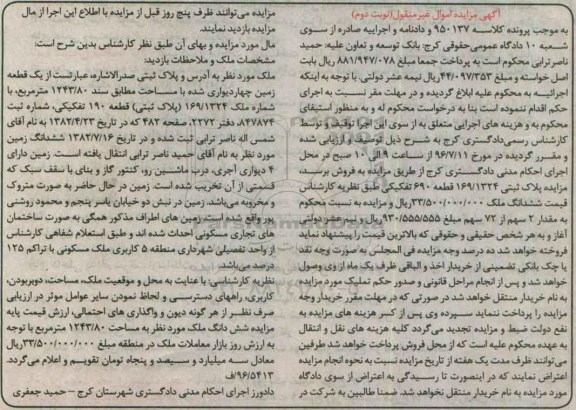 آگهی مزایده اموال غیرمنقول(نوبت دوم)
به موجب پرونده کلاسه ۹۵۰۱۳۷ و دادنامه و اجراییه صادره از سوی
شعبه ۱۰ دادگاه عمومی‌حقوقی کرج: بانک توسعه و تعاون علیه: حمید
ناصر ترابی محکوم است به پرداخت جمعا مبلغ ۸۸۱/۹۴۷/۰۷۸ ریال بابت
اصل خواسته و مبلغ ۴۴/۰۹۷/۳۵۳ریال نیمه عشر دولتی. با توجه به اینکه
اجرائیــه به محکوم علیه ابلاغ گردیده و در مهلت مقرر نسبت به اجرای
حکم اقدام ننموده است بنا به درخواست محکوم له و به منظور استیفای
محکوم به و هزینه های اجرایی متعلق به از سوی این اجرا توقیف و توسط
کارشناس رسمی‌دادگستری کرج به شــرح ذیل توصیف و ارزیابی شده
و مقــرر گردیده در مورخ ۹۶/۷/۱۱ از ساعت ۹ الی ۱۰ صبح در محل
اجرای احکام مدنی دادگستری کرج از طریق مزایده به فروش برسد.
مزایده پلاک ثبتی ۱۶۹/۱۳۲۴ قطعه ۶۹۰ تفکیکی طبق نظریه کارشناس
قیمت ششدانگ ملک ۳۳/۵۰۰/۰۰۰/۰۰۰ریال و مزایده به نسبت محکوم
به مقدار ۲ سهم از ۷۲ سهم مبلغ ۹۳۰/۵۵۵/۵۵۵ریال و نیم عشر دولتی
آغاز و به هر شخص حقیقی و حقوقی که بالاترین قیمت را پیشنهاد نماید
فروخته خواهد شد ده درصد وجه مزایده فی المجلس به صورت وجه نقد
یا چک بانکی تضمینی از خریدار اخذ و الباقی ظرف یک ماه از وی وصول
خواهد شد و پس از انجام مراحل قانونی و صدور حکم تملیک مورد مزایده
به نام خریدار منتقل خواهد شد. در صورتی که در مهلت مقرر خریدار وجه
مزایده را پرداخت ننماید سپرده وی پس از کسر هزینه های مزایده به
نفع دولت ضبط و مزایده تجدید می‌گردد کلیه هزینه های نقل و انتقال
به عهده محکوم علیه است که از محل فروش پرداخت خواهد شد طرفین
می‌توانند ظرف مدت یک هفته از تاریخ مزایده نسبت به نحوه انجام مزایده
اعتراض نمایند که در اینصورت تا رسیدگی به اعتراض از سوی دادگاه
مورد مزایده به نام خریدار منتقل نخواهد شد. ضمنا طالبین به شرکت در
مزایده می‌توانند ظرف پنج روز قبل از مزایده با اطلاع این اجرا از مال
مزایده بازدید نمایند.
مال مورد مزایده و بهای آن طبق نظر کارشناس بدین شرح است:
مشخصات ملک و ملاحظات بازدید:
ملک مورد نظر به آدرس و پلاک ثبتی صدرالاشاره، عبارتست از یک قطعه
زمین چهاردیواری شده با مساحت مطابق سند ۱۲۴۳/۸۰ مترمربع، با
شماره ملک ۱۶۹/۱۳۲۴ (پلاک ثبتی) قطعه ۱۹۰ تفکیکی، شماره ثبت
۸۴۷۸۷۴، دفتر ۲۲۷۲، صفحه ۴۸۲ که در تاریخ ۱۳۸۲/۴/۲۳ به نام آقای
شمس اله ناصر ترابی ثبت شده و در تاریخ ۱۳۸۲/۷/۱۶ ششدانگ زمین
مورد نظر به نام آقای حمید ناصر ترابی انتقال یافته اســت. زمین دارای
۴ دیواری آجری، درب ماشین رو، کنتور گاز و بنای با سقف سبک که
قسمتی از آن تخریب شده است. زمین در حال حاضر به صورت متروک
و مخروبه می‌باشد. زمین در نبش دو خیابان یاسر پنجم و محمود روشنی
پور واقع شده است. زمین های اطراف مذکور همگی به صورت ساختمان
های تجاری مسکونی احداث شده اند و طبق استعلام شفاهی کارشناس
از واحد تفصیلی شهرداری منطقه ۵ کاربری ملک مسکونی با تراکم ۱۲۵
درصد می‌باشد.
نظریه کارشناسی: با عنایت به محل و موقعیت ملک، مساحت، دوبر‌بودن،
کاربری، راههای دسترســی و لحاظ نمودن سایر عوامل موثر در ارزیابی
صرف نظــر از هر گونه دیون و واگذاری های احتمالی، ارزش قیمت پایه
مزایده شش دانگ ملک مورد نظر به مساحت ۱۲۴۳/۸۰ مترمربع با توجه
به ارزش روز بازار معاملات ملک در منطقه مبلغ ۳۳/۵۰۰/۰۰۰/۰۰۰ریال
معادل سه میلیارد و سیصد و پنجاه تومان تقویم و اعلام می‌گردد.
۹۶/۵۴۱۳/ف
دادورز اجرای احکام مدنی دادگستری شهرستان کرج – حمید جعفری